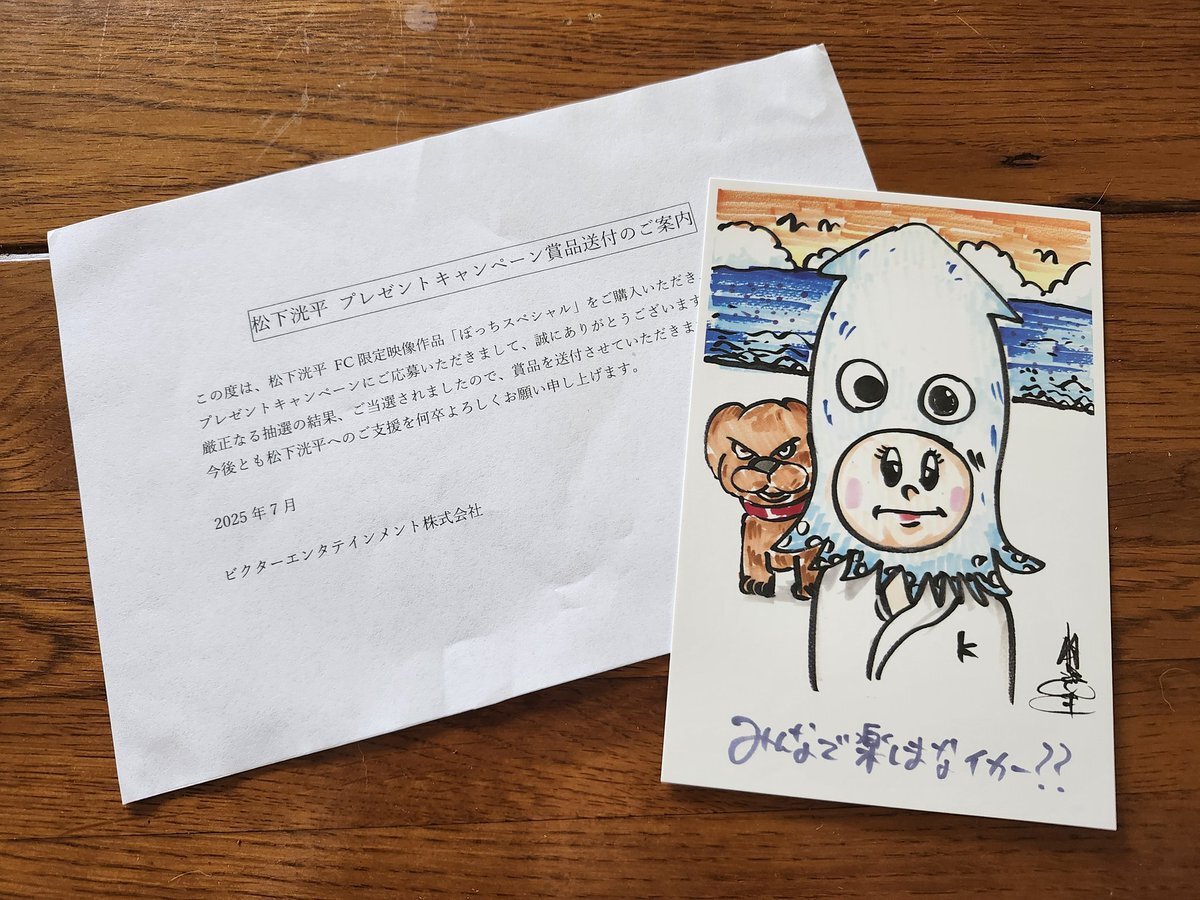 松下洸平 プレゼントキャンペーン賞品送付のご案内
この度は、松下洸平 FC限定映像作品「ぼっちスペシャル」をご購入いただき
プレゼントキャンペーンにご応募いただきまして、誠にありがとうございます
厳正なる抽選の結果、ご当選されましたので、賞品を送付させていただきま
今後とも松下洸平へのご支援を何卒よろしくお願い申し上げます。
2025年7月
ビクターエンタテインメント株式会社
k
みんなで楽しまなイカー??